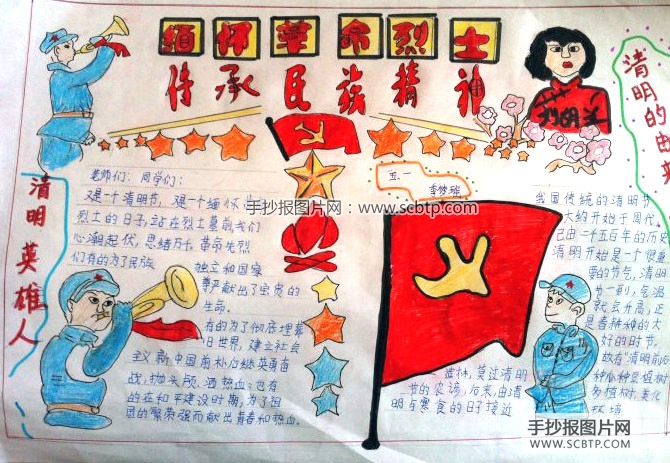 缅怀革命烈士
传承民族精神
清明英雄人
老师们：同学们：
又是一个清明节，又是一个缅怀
烈士的日子，站在烈士墓前，我们
心潮起伏，思绪万千。革命先烈
们有的为了民族
独立和国家
尊严献出了宝贵的
生命。
有的为了彻底埋葬
旧世界，建立社会
主义新中国前朴后继英勇奋
战，抛头颅，洒热血，也有
的在和平建设时期，为了祖
国的繁荣强而献出青春和热血。
手抄报图片网：www.scbtp.com
五.一
刘明兰
清明的由来
我国传统的清明节
大约开始于周代，
已由二千五百年的历史
清明开始是一个很重
要的节气，清明
一到，气温
就会升高，正
是春耕种的大
好的时节。
故有“清明前后
种瓜种豆植树
造林，莫过清明
节的农谚，后来，由清
明与寒食的日子接近
手抄报图片网
WWW.SCBTP.COM